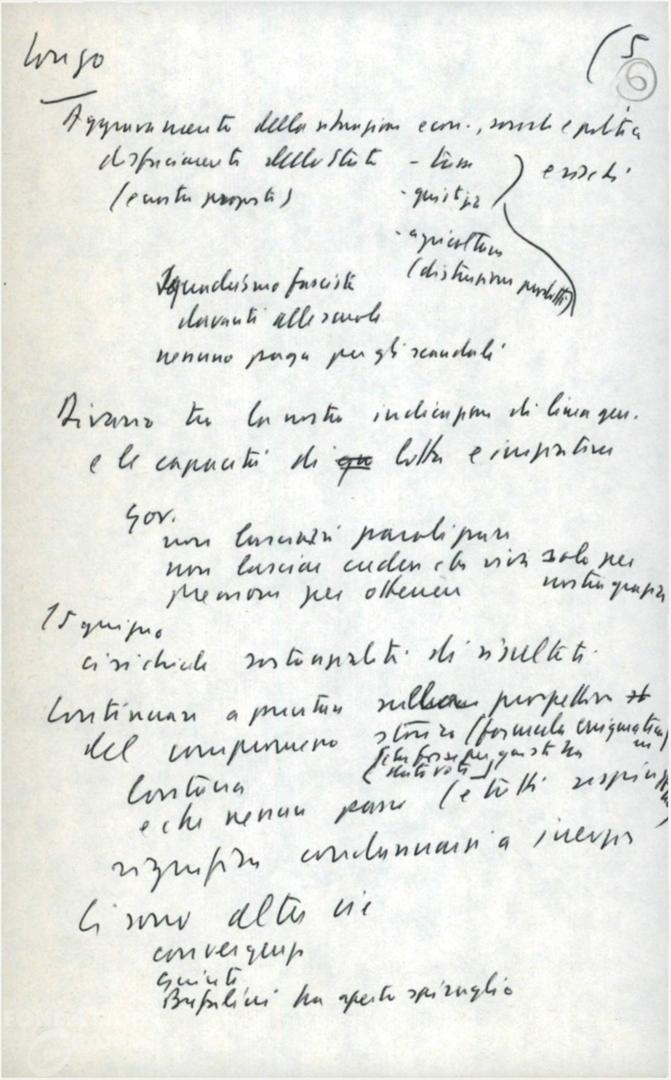 Longo
(5
6
Aggravamento della situazione econ., sociale e politica
disfacimento dello Stato - 
(e nostre proposte) - giustizia
- agricoltura
(distruzione prodotti)
Squadrismo fascista
davanti alle scuole
nessuno paga per gli scandali
Divario tra la nostra indicazione di linea gen.
e le capacità di lotta e iniziativa
gov.
non lasciarsi paralizzare
non lasciar credere che viva solo per
nostra grazia
premere per ottenere
15 giugno
ci si chiede di risultati
Continuare a puntare sulla prospettiva
del compromesso storico (formula enigmatica
lontana
e che nessun (e tutti
significa condannarsi a inerzia
Ci sono altre vie
convergenze
giunte
Bufalini ha aperto spiraglio